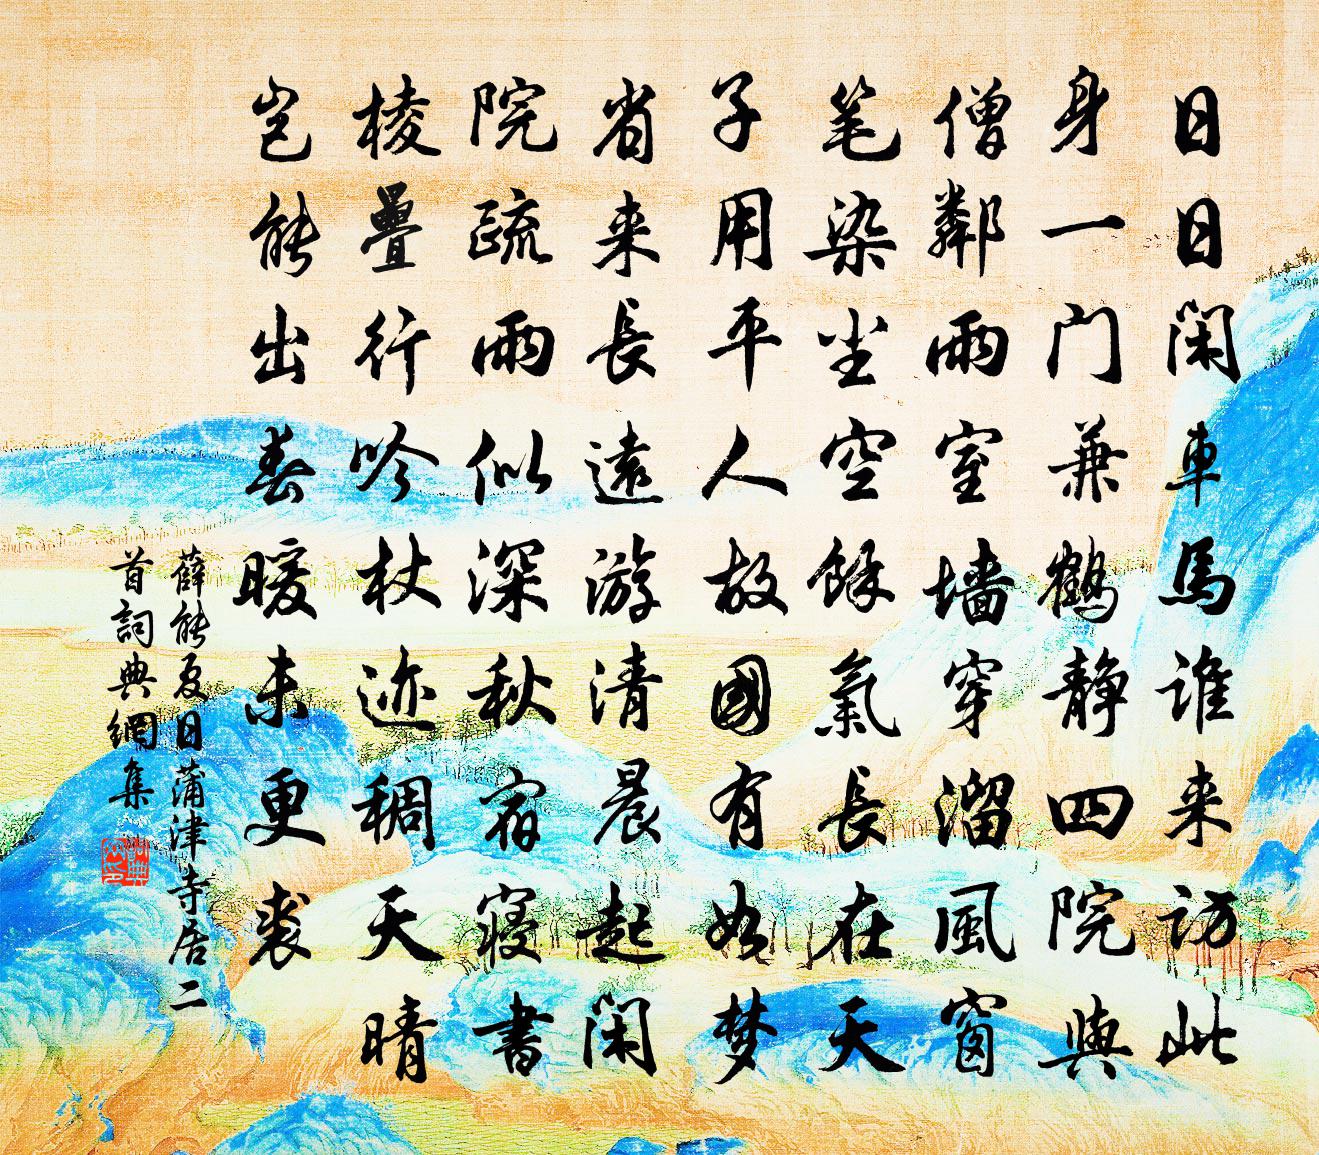 日日闲車馬誰来訪此
身一门兼鶴静四院與
僧鄰雨室墙穿溜風窗
笔染尘空餘氣長在天
子用平人故國有如梦
省来長遠游清晨起闲
院疏雨似深秋宿寝書
棱疊行吟杖迹稠天晴
岂能出春暖未更裘
薛能夏日蒲津寺居二
首詞典網集